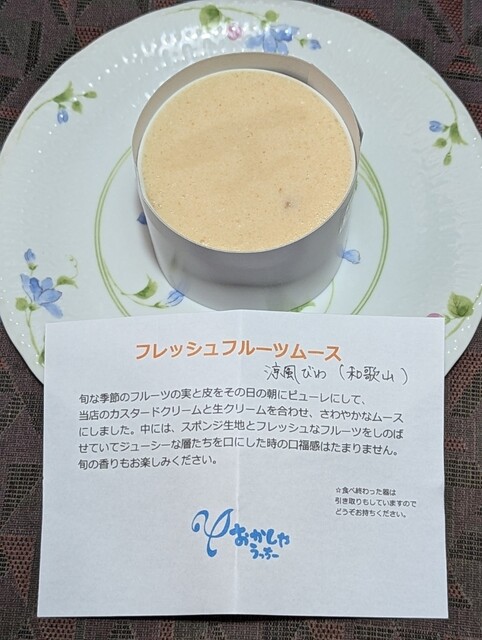 フレッシュフルーツムース
涼風びわ（和歌山）
旬な季節のフルーツの実と皮をその日の朝にピューレにして、
当店のカスタードクリームと生クリームを合わせ、さわやかなムース
にしました。中には、スポンジ生地とフレッシュなフルーツをしのば
せていてジューシーな層たちを口にした時の口福感はたまりません。
旬の香りもお楽しみください。
☆食べ終わった器は
引き取りもしていますので
どうぞお持ちください。
おかしや
うっちー